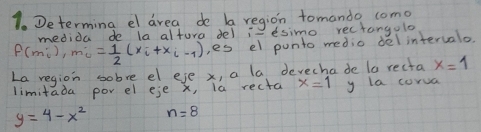 1. Determina el área de la región tomando como
medida de la altura del i-ésimo rectangulo
P(mᵢ), mᵢ = 1/2 (xᵢ + xᵢ₋₁), es el punto medio del intervalo.
La region sobre el eje x, a la derecha de la recta x = 1
limitada por el eje x, la recta x = 1 y la corva
y = 4 - x² n = 8